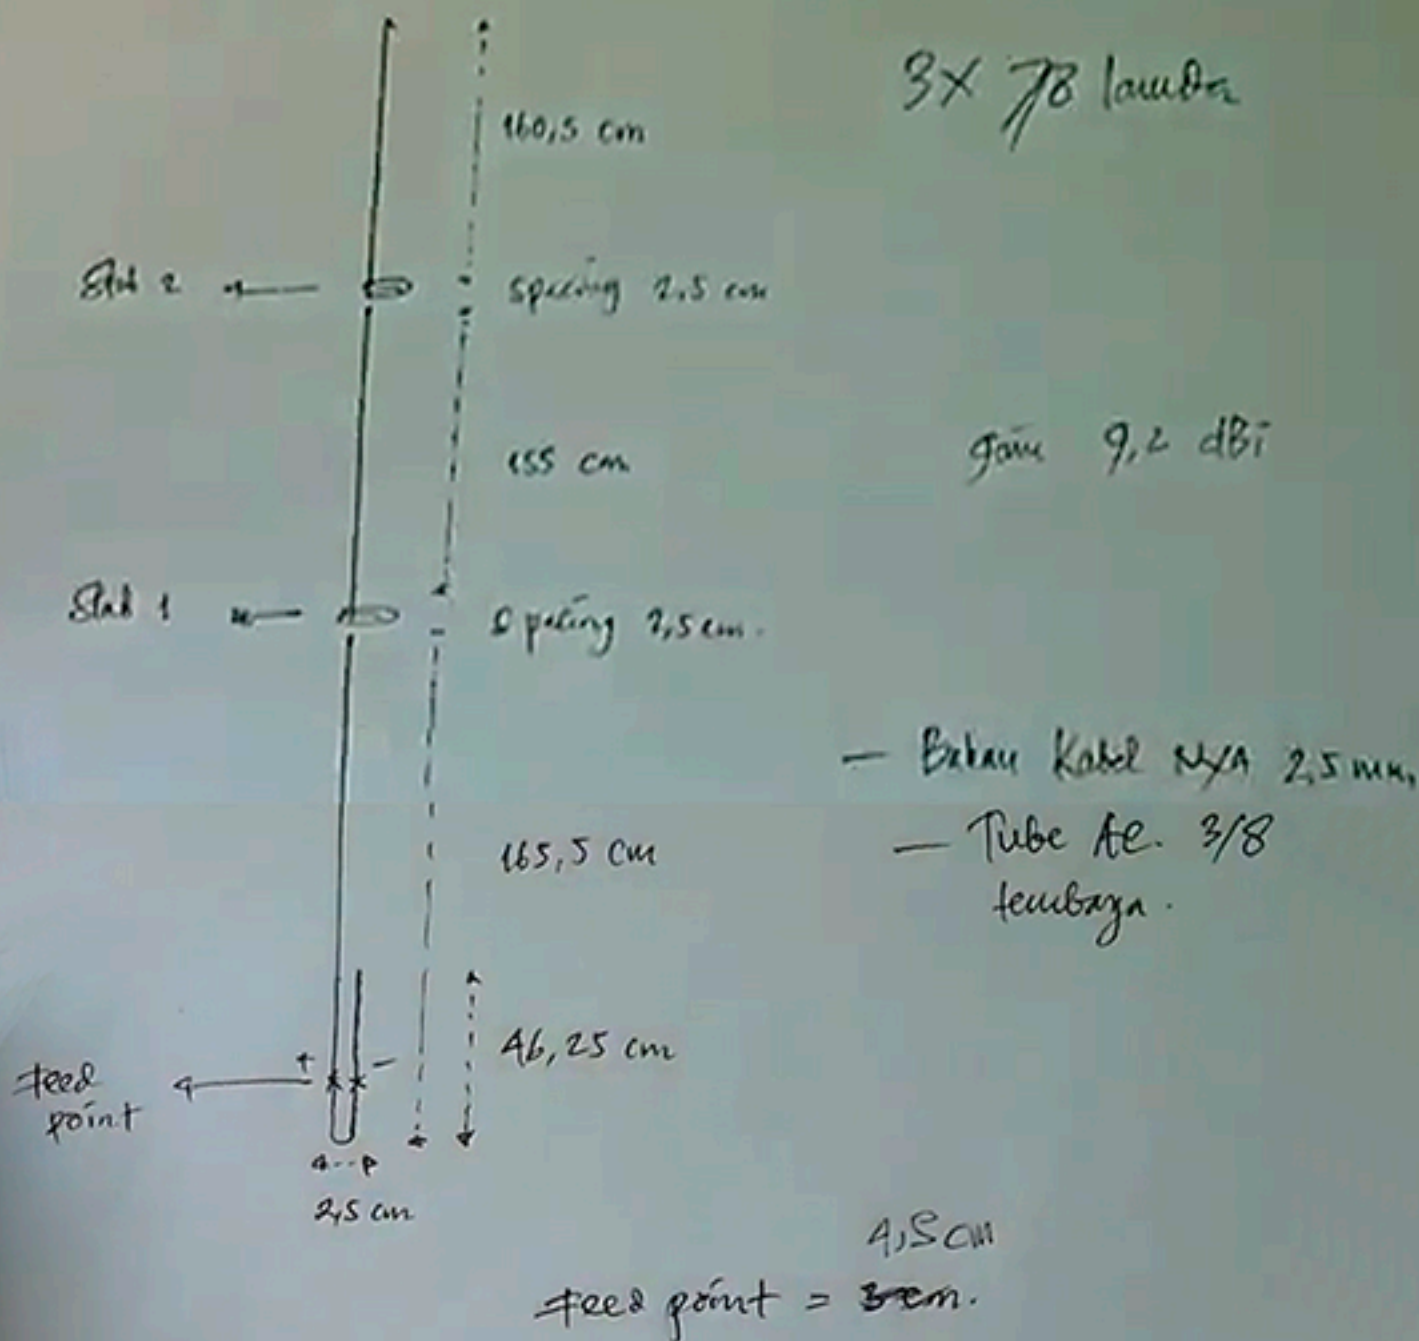 3X 7/8 lamda
160,5 cm
Stub 2
spacing 2,5 cm
155 cm
gain 9,2 dBi
Stub 1
spacing 2,5 cm.
- Bahan Kabel NYA 2,5 mm,
165,5 cm
- Tube AC. 3/8
tembaga.
46,25 cm
+ -
Feed
point
2,5 cm
4,5 cm
Feed point = 3 cm.